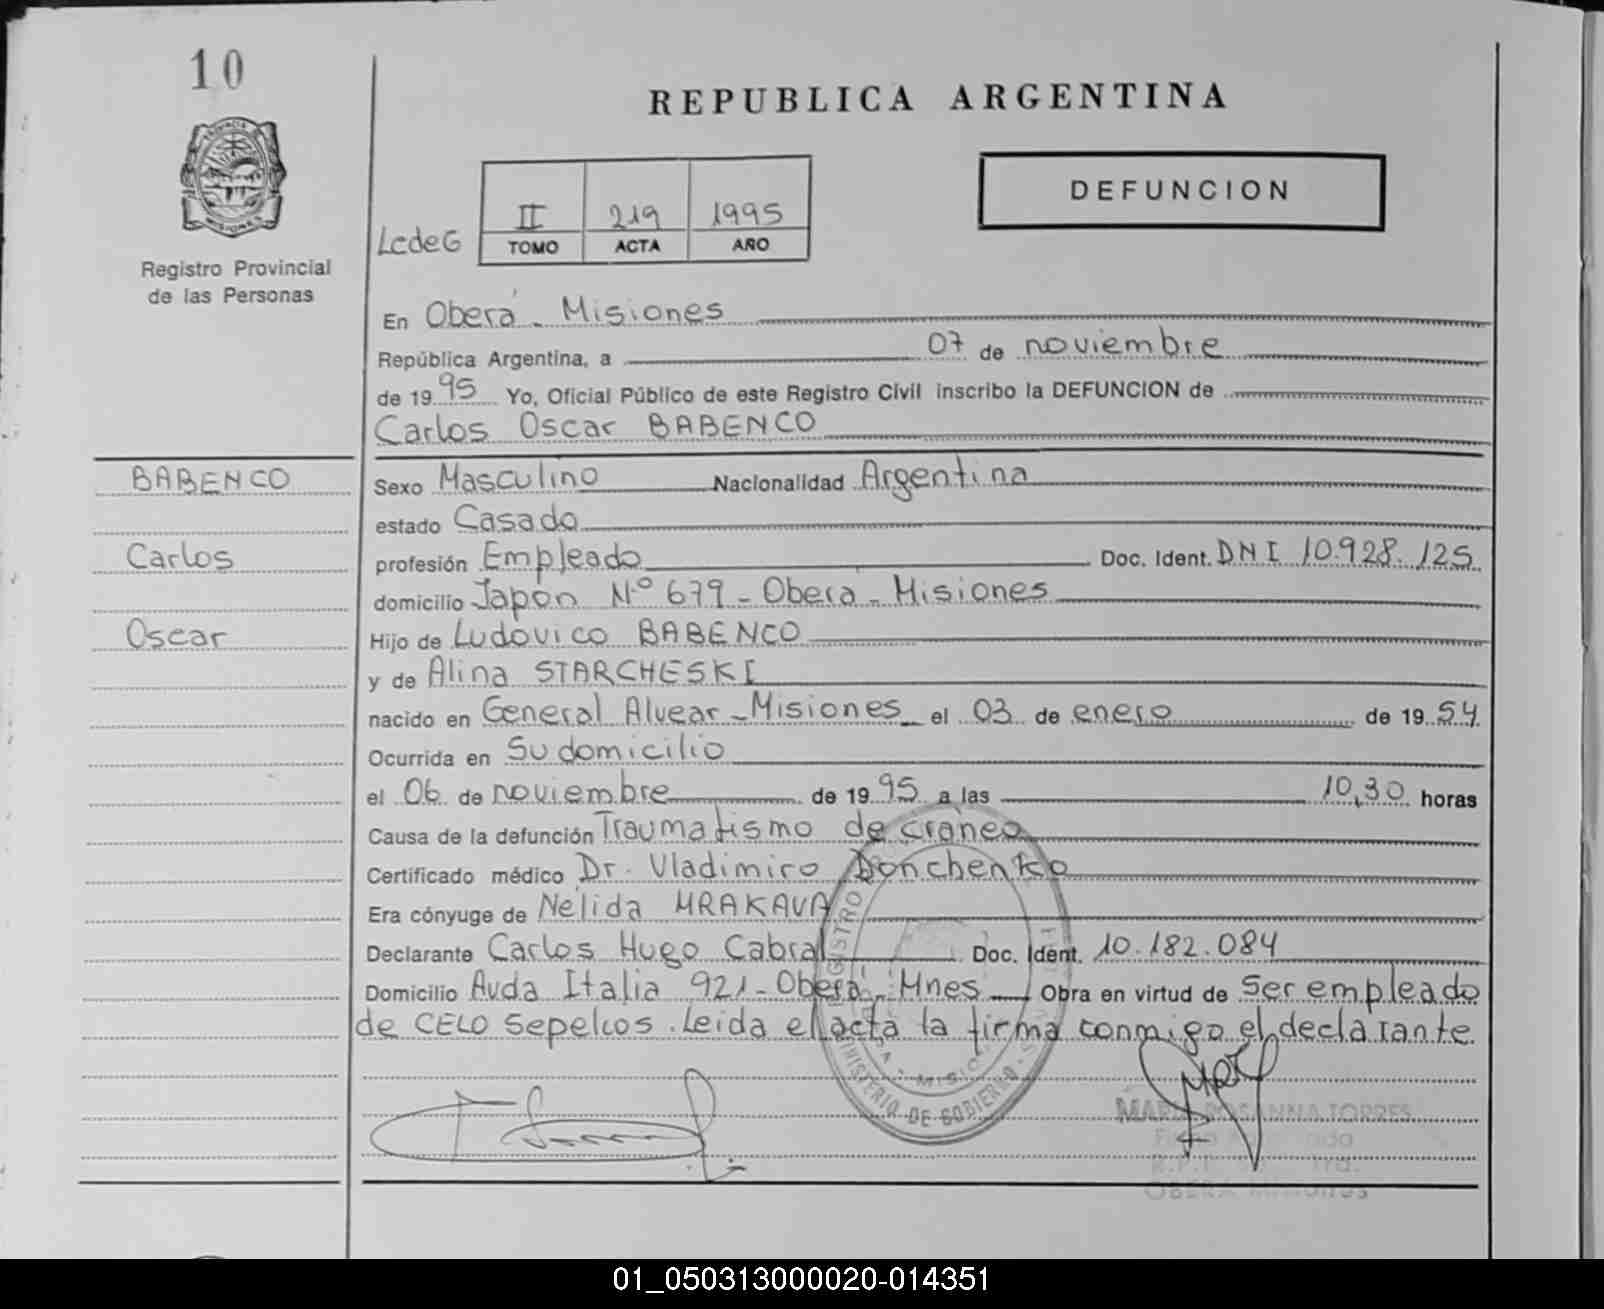 10
REPUBLICA ARGENTINA
PROVINCIA DE
MISIONES
Registro Provincial
de las Personas
LcdeG
II 219 1995
TOMO ACTA AÑO
DEFUNCION
En Oberá - Misiones
República Argentina, a 07 de noviembre
de 1995 Yo, Oficial Público de este Registro Civil inscribo la DEFUNCION de
Carlos Oscar BABENCO
BABENCO
Carlos
Oscar
Sexo Masculino Nacionalidad Argentina
estado Casado
profesión Empleado Doc. Ident. DNI 10.928.125
domicilio Japón Nº 679 - Oberá - Misiones
Hijo de Ludovico BABENCO
y de Alina STARCHESKI
nacido en General Alvear - Misiones el 03 de enero de 1954
Ocurrida en Su domicilio
el 06 de noviembre de 1995 a las 10,30 horas
Causa de la defunción Traumatismo de cráneo
Certificado médico Dr. Vladimiro Donchenko
Era cónyuge de Nélida MRAKAVA
Declarante Carlos Hugo Cabral Doc. Ident. 10.182.084
Domicilio Avda Italia 921 - Oberá - Mnes Obra en virtud de Ser empleado
de CELO Sepelios. Leida el acta la firma conmigo el declarante
REGISTRO
MINISTERIO DE GOBIERNO
MISIONES
ROSANNA TORRES
OBERA Misiones
01_050313000020-014351